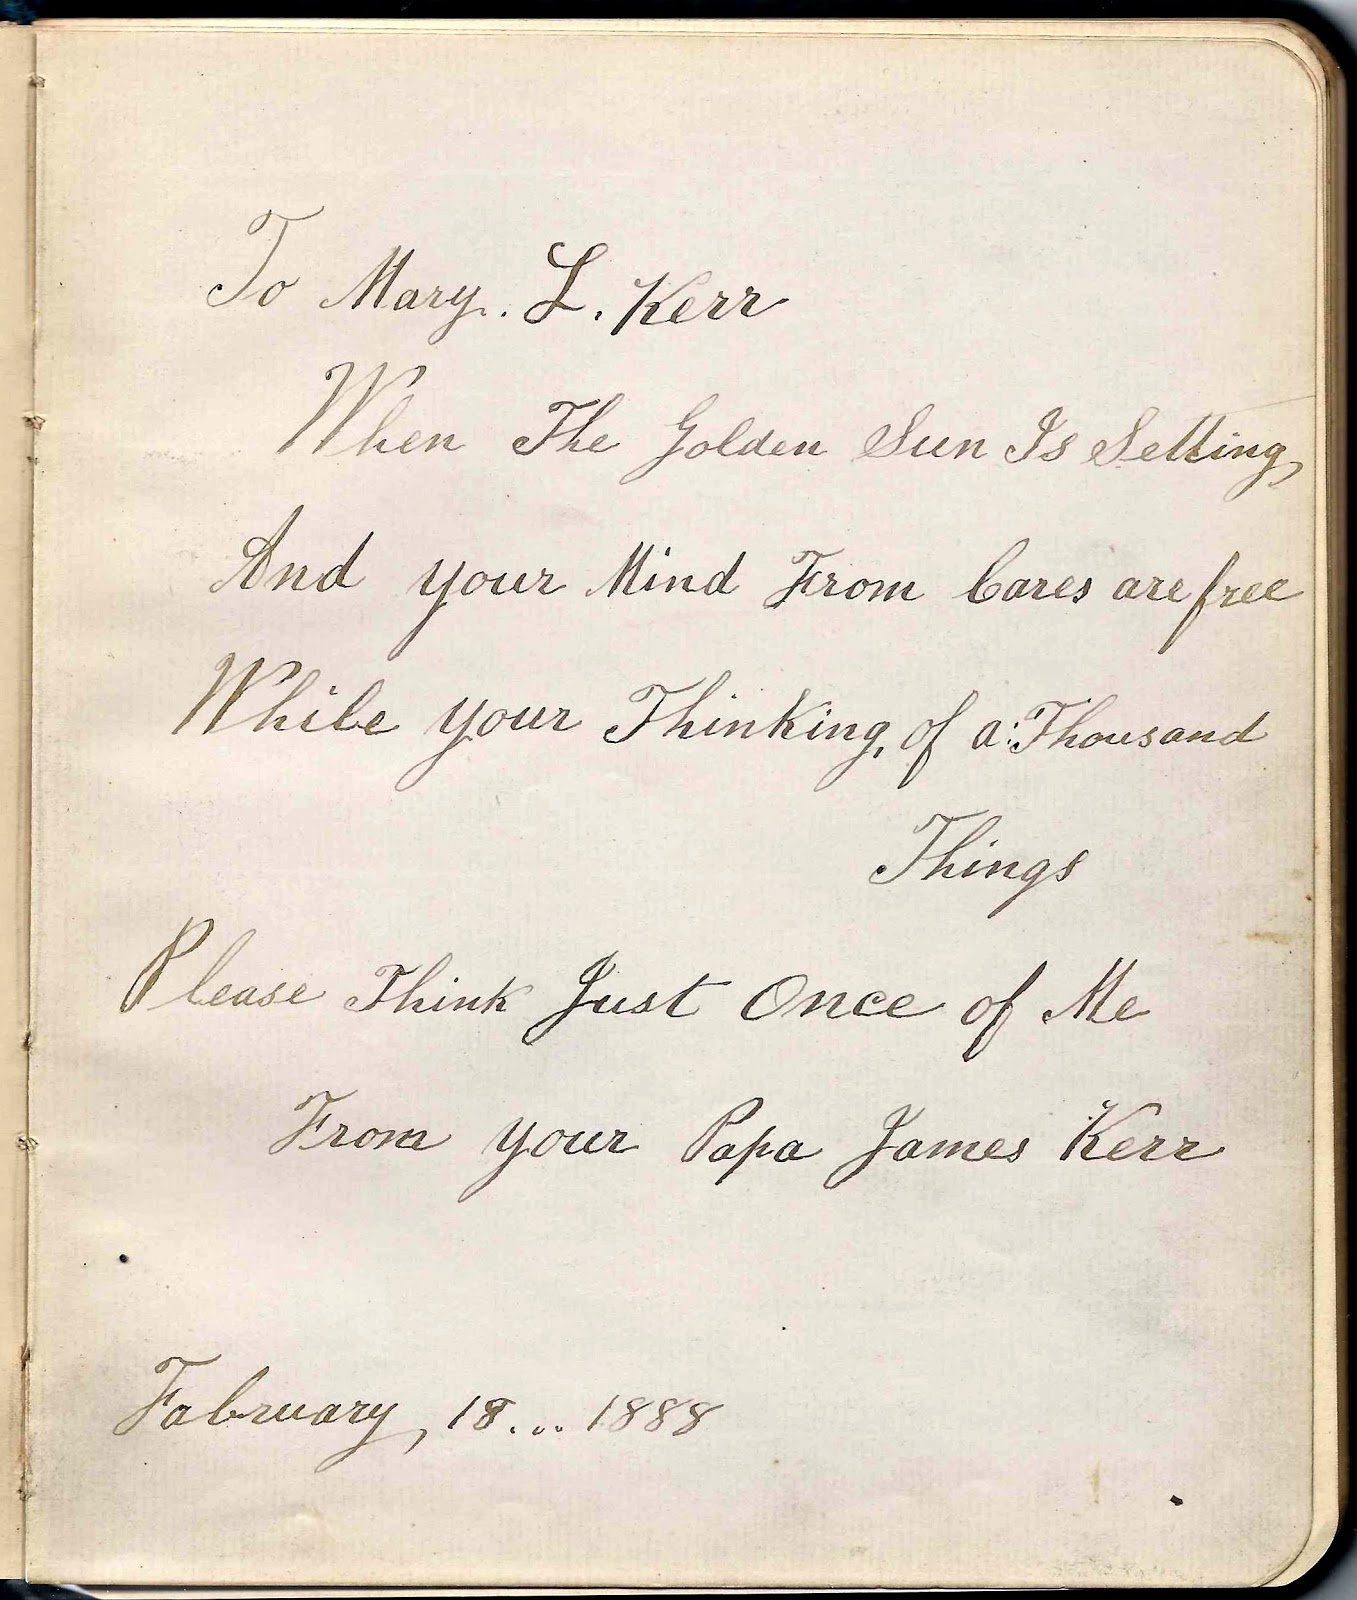 To Mary. L. Kerr
When The Golden Sun Is Setting,
And your Mind From Cares are free
While your Thinking, of a: Thousand
Things
Please Think Just Once of Me
From your Papa James Kerr
Fabruary, 18... 1888